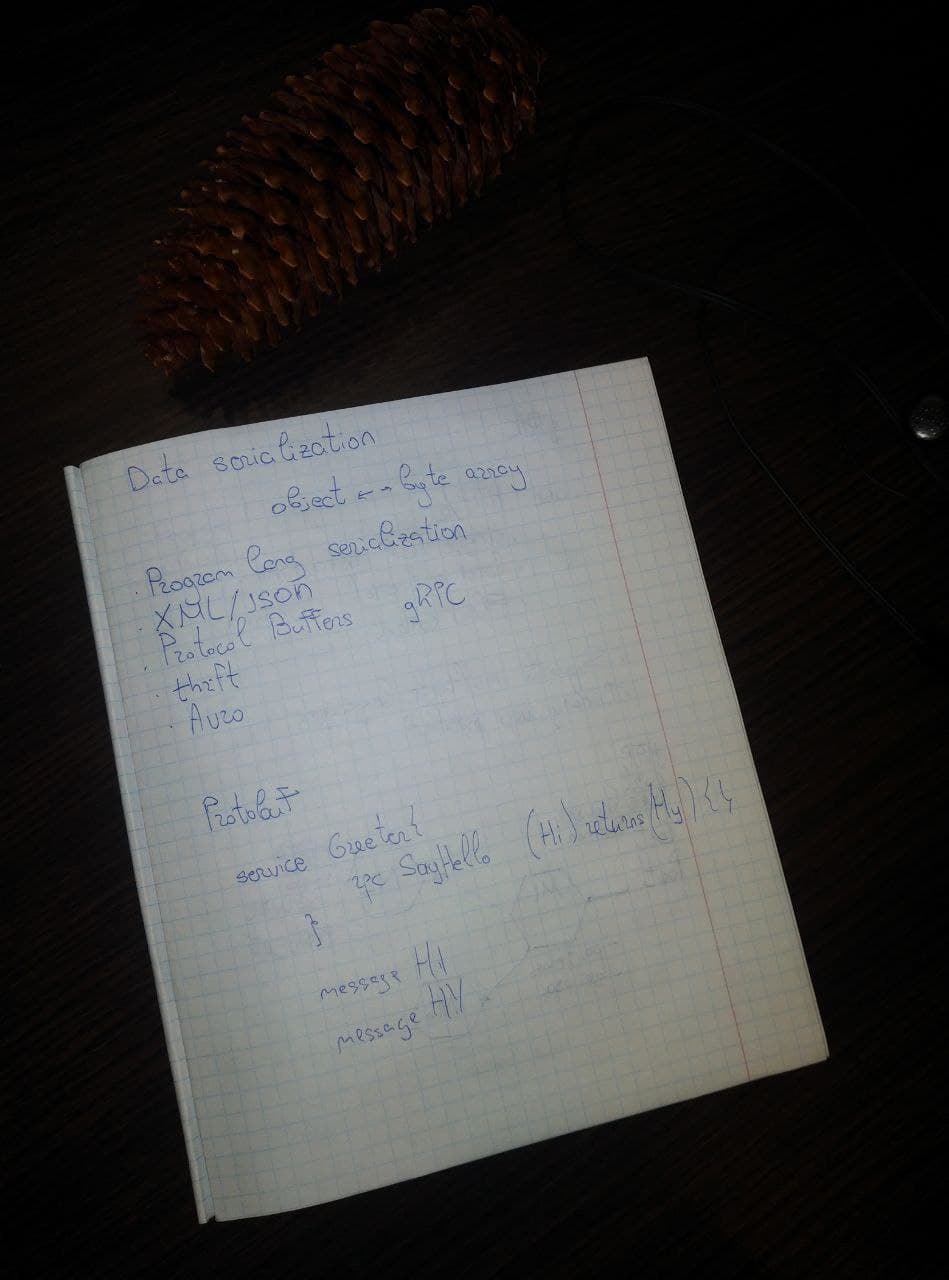 Data sorialization
object ← → byte array
· Program lang serialization
· XML/JSON
· Protocol Buffers gRPC
· thrift
· Avro
Protobuf
service Greeter{
rpc SayHello (Hi) returns (Hy) {}
}
message Hi
message Hy